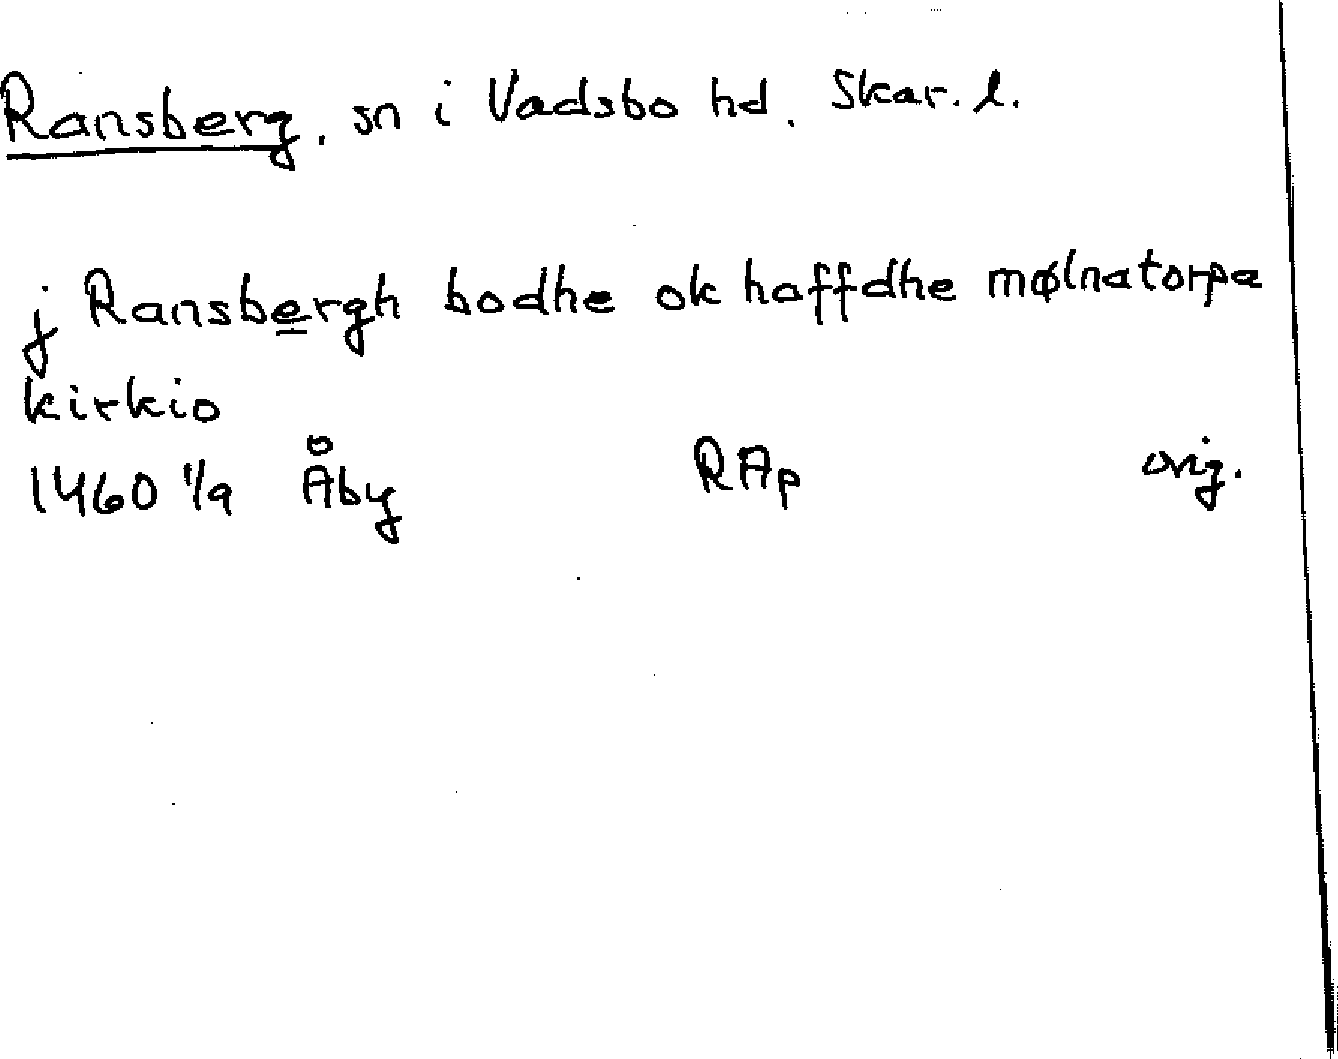 Ransberg, sn i Vadsbo hd. Skar. l.
j Ransbergh bodhe ok haffdhe mølnatorpa
kirkio
1460 1/9 Åby RAp orig.